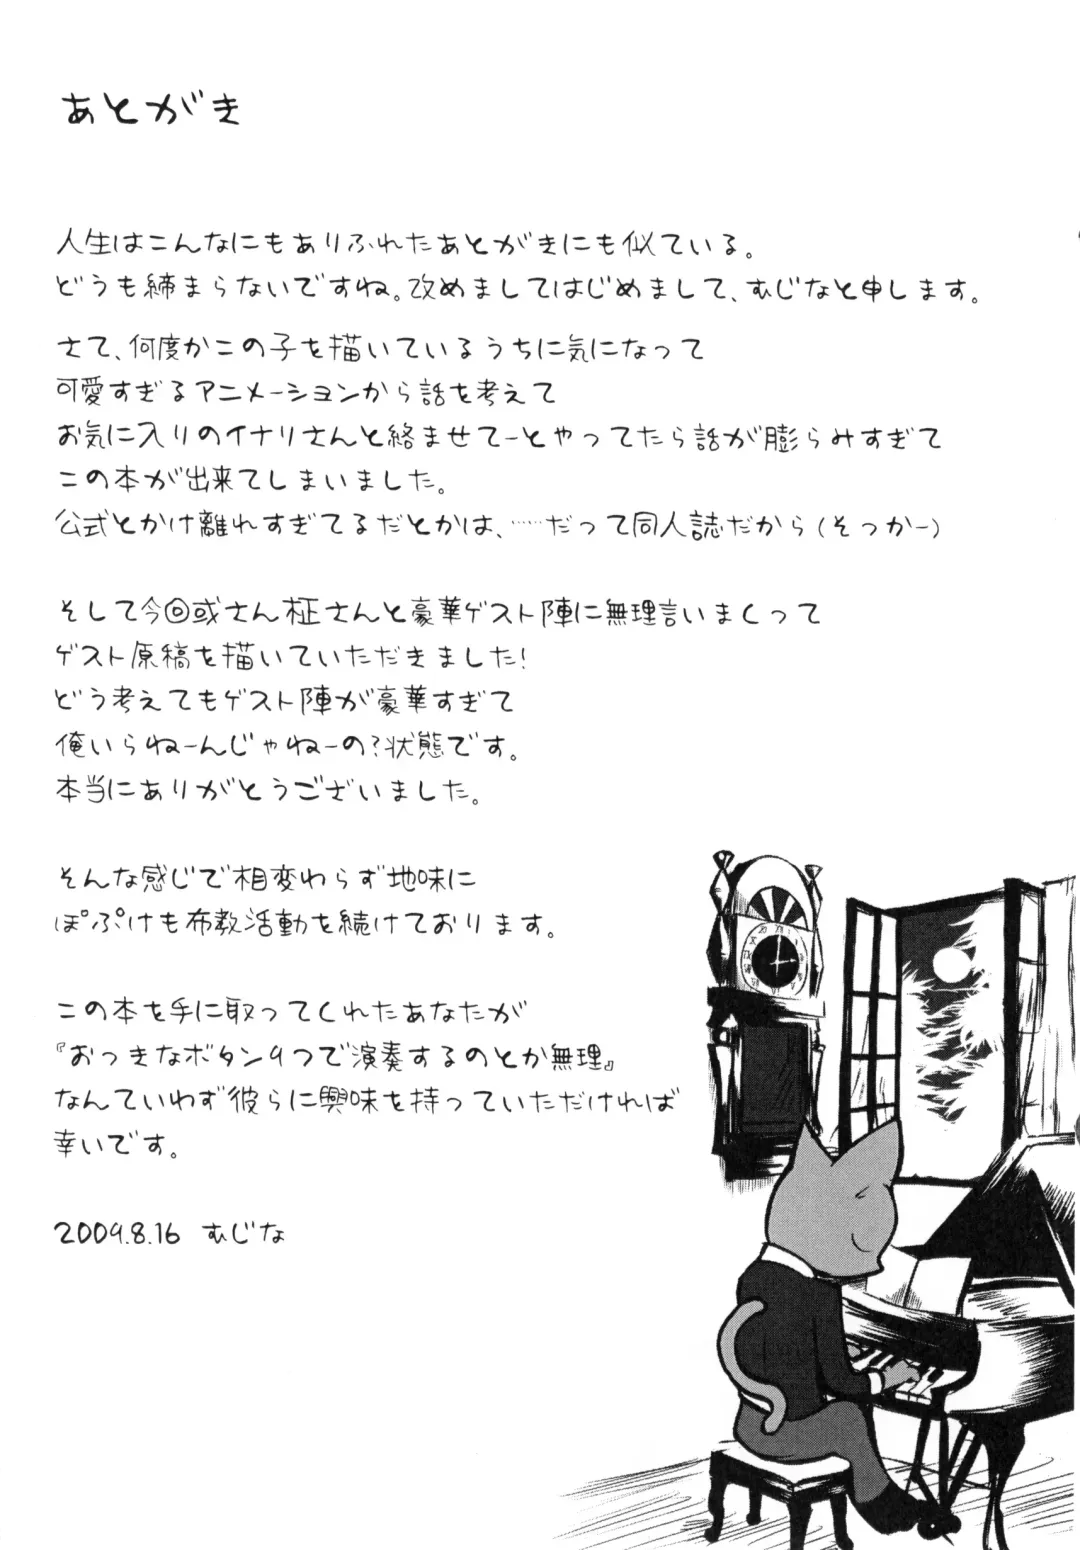 あとがき
人生はこんなにもありふれたあとがきにも似ている。
どうも締まらないですね。改めましてはじめまして、むじなと申します。
さて、何度かこの子を描いているうちに気になって
可愛すぎるアニメーションから話を考えて
お気に入りのイナリさんと絡ませてーとやってたら話が膨らみすぎて
この本が出来てしまいました。
公式とかけ離れすぎてるだとかは、……だって同人誌だから(そっかー)
そして今回或さん柾さんと豪華ゲスト陣に無理言いまくって
ゲスト原稿を描いていただきました!
どう考えてもゲスト陣が豪華すぎて
俺いらねーんじゃねーの?状態です。
本当にありがとうございました。
そんな感じで相変わらず地味に
ぽぷけも布教活動を続けております。
この本を手に取ってくれたあなたが
『おっきなボタン9つで演奏するのとか無理』
なんていわず彼らに興味を持っていただければ
幸いです。
2009.8.16 むじな